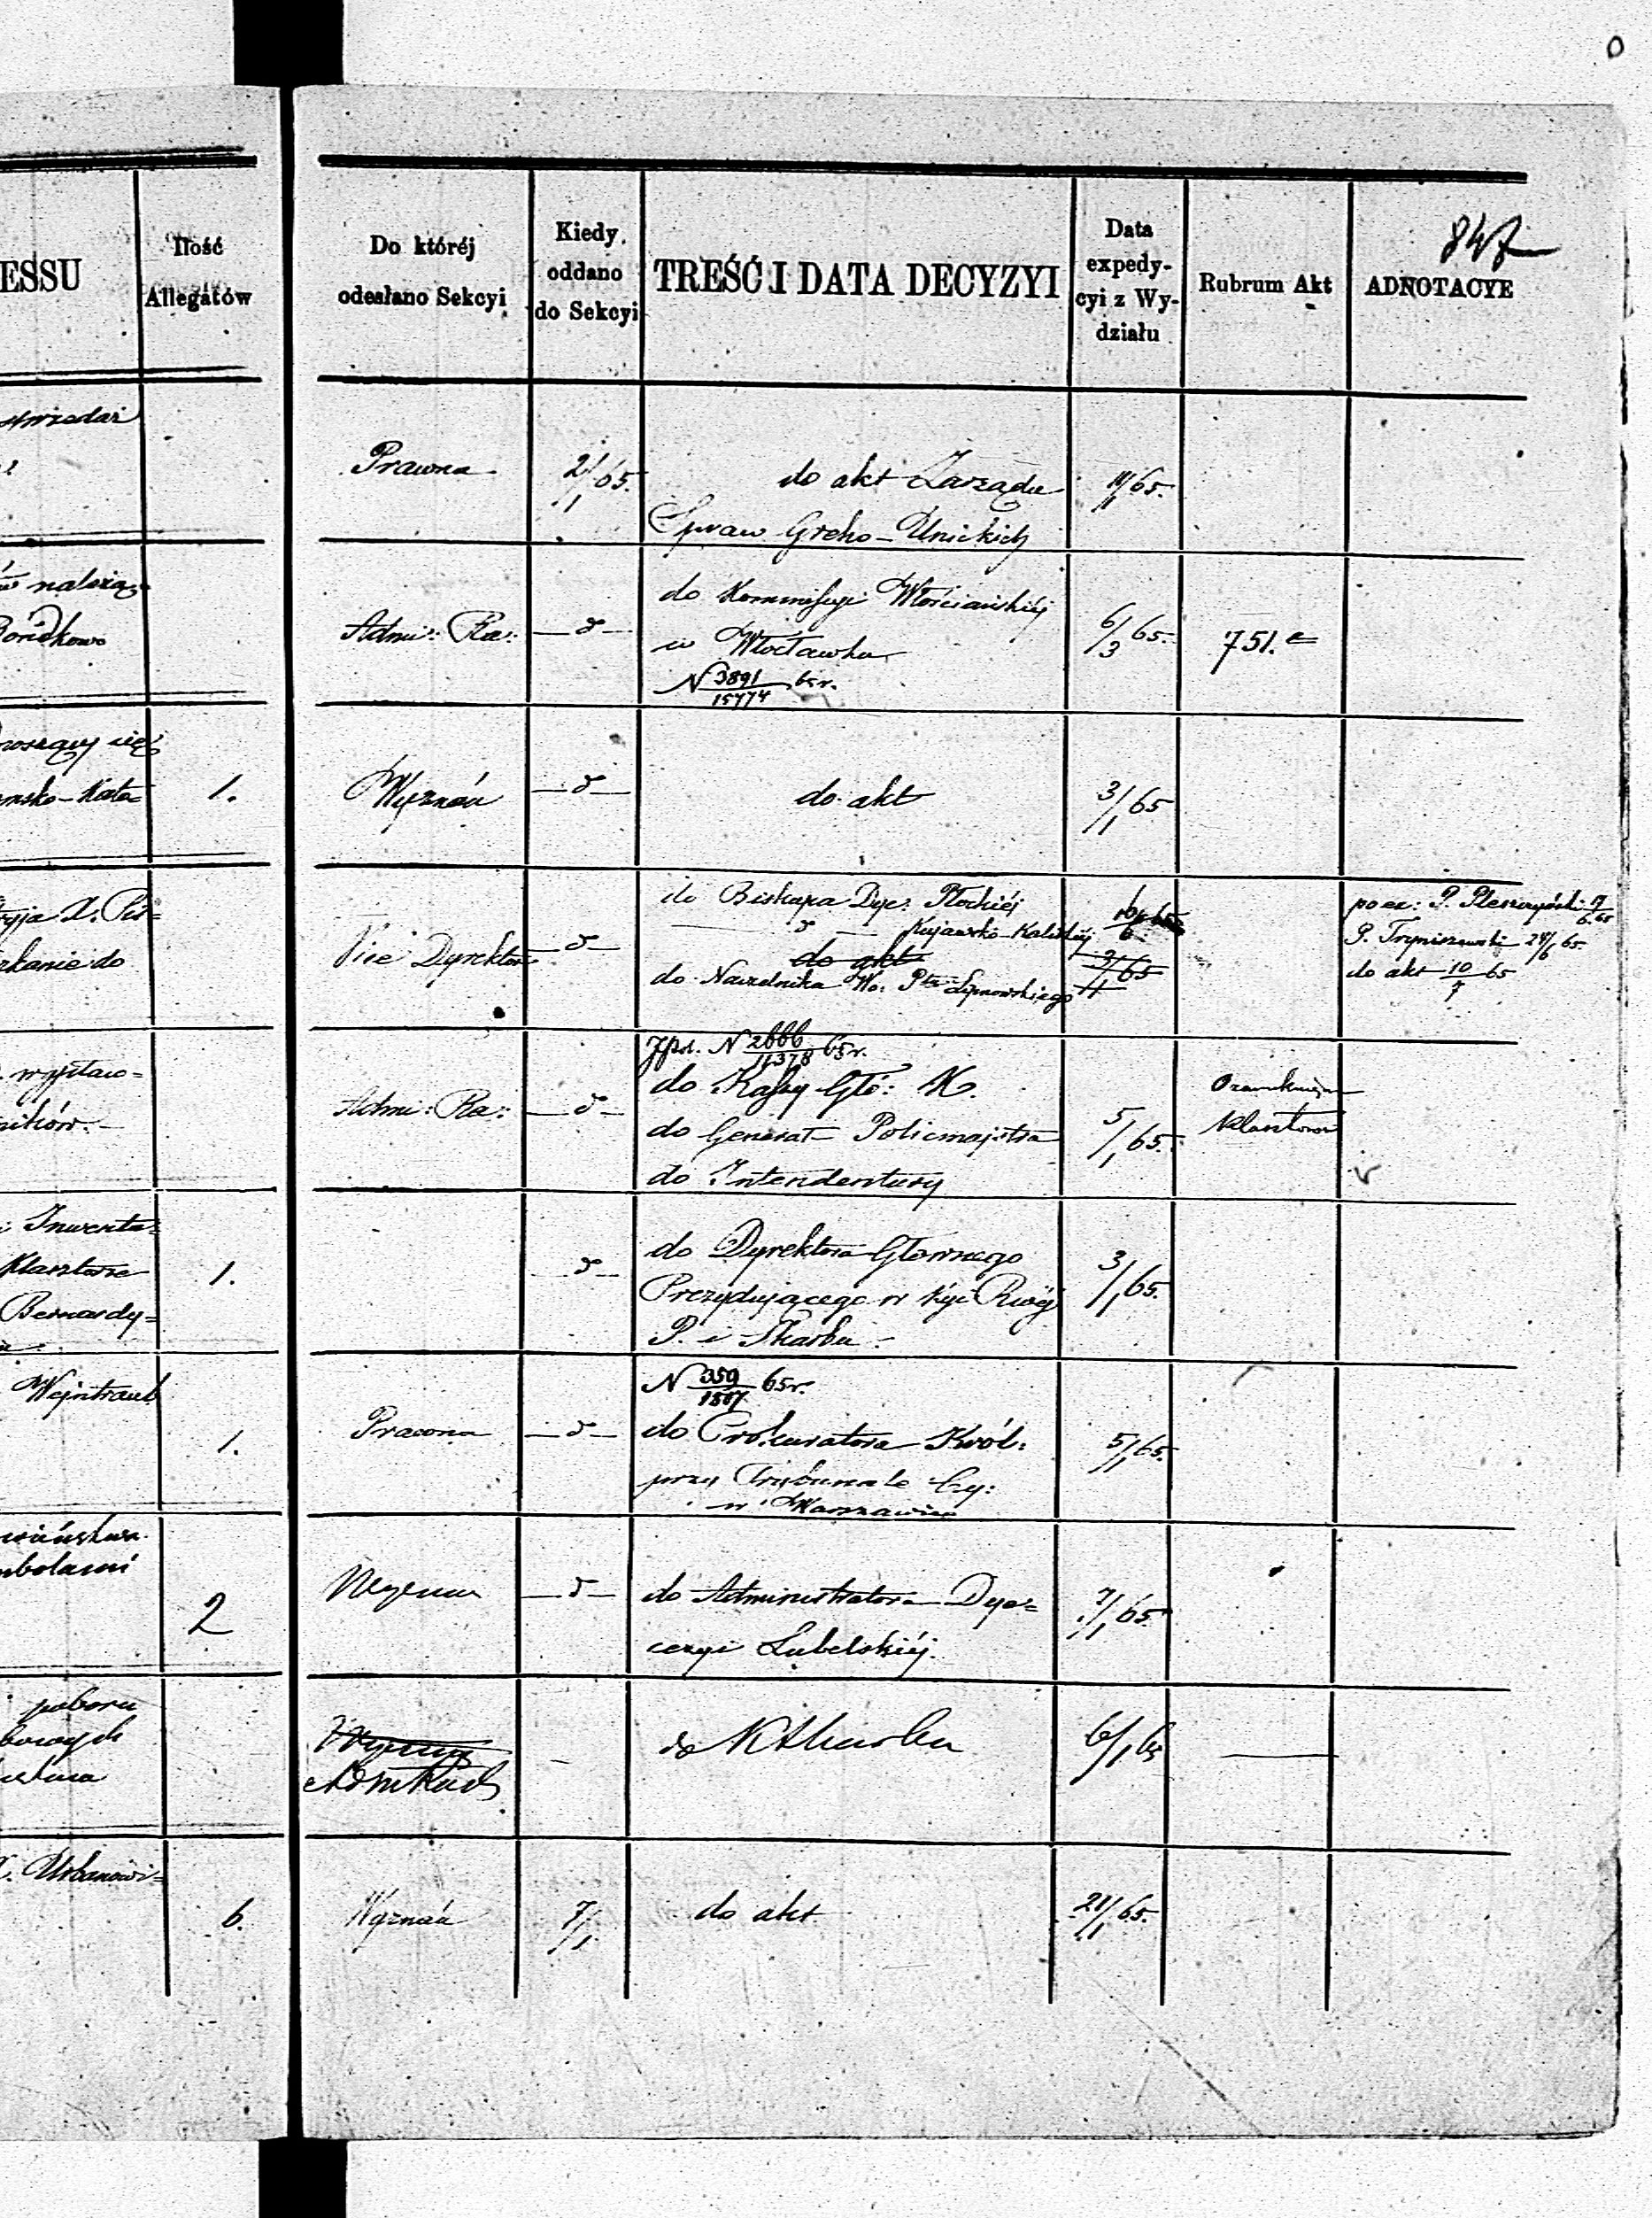 0
847
ESSU
Ilość
Allegatów
Do któréj
odesłano Sekcyi
Kiedy
oddano
do Sekcyi
TREŚĆ I DATA DECYZYI
Data
expedy-
cyi z Wy-
działu
Rubrum Akt
ADNOTACYE
Prawna
2/1 65.
do akt Zarządu
Spraw Greko-Unickich
11/1 65.
należą-
Admi: Ra:
—d—
do Kommissyi Włościańskiéj
w Włocławku
N 3891/15774 65 r.
6/3 65.
751.
noszący się
msko-Kato=
1.
Wyznań
—d—
do akt
3/1 65
zkanie do
Vice Dyrektor
—d—
do Biskupa Dyc. Płockiéj
— d — Kujawsko-Kaliskiéj
do akt
do Naczelnika Wo. Ptu Lipnowskiego
3/1 65
P. Tryniszewski 24/6 65
do akt 10/7 65
wystaw=
ników.-
Admi: Ra:
—d—
N 2666/11378 65 r.
do Kassy Głó: K.
do Generał-Policmajstra
do Intendentury
5/1 65.
O zamknięciu
Klasztorów
Inwenta=
Klasztorze
Bernardy=
1.
—d—
do Dyrektora Głównego
Prezydującego w Kyi Rwéj
P. i Skarbu.
3/1 65.
Wejntraub
1.
Prawna
—d—
N 359/1517 65 r.
do Prokuratora Król:
przy Trybunale Cy:
w Warszawie
5/1 65.
2
Wyznań
—d—
do Administratora Dye=
cezyi Lubelskiéj.
7/1 65
poboru
bowych
—
do K Skarbu
6/1 65
—
Urbanowi=
6.
Wyznań
7/1
do akt
21/1 65.